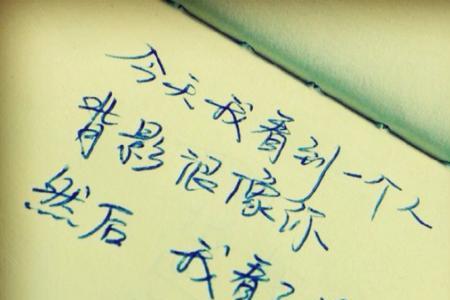 今天我看到一个人
背影很像你
然后 我看